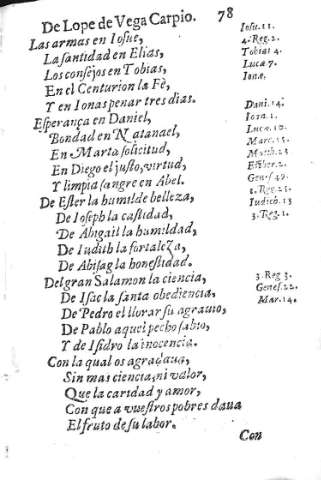 De Lope de Vega Carpio. 78
Las armas en Iosue,
La santidad en Elias,
Los consejos en Tobias,
En el Centurion la Fè,
Y en Ionas penar tres dias.
Esperança en Daniel,
Bondad en Natanael,
En Marta solicitud,
En Diego el justo, virtud,
Y limpia sangre en Abel.
De Ester la humilde belleza,
De Ioseph la castidad,
De Abigail la humildad,
De Iudith la fortaleza,
De Abisag la honestidad.
Del gran Salamon la ciencia,
De Isac la santa obediencia,
De Pedro el llorar su agrauio,
De Pablo aquel pecho sabio,
Y de Isidro la inocencia.
Con la qual os agradaua,
Sin mas ciencia, ni valor,
Que la caridad y amor,
Con que a vuestros pobres daua
El fruto de su labor.
Con
Iosu. 11.
4. Reg. 2.
Tobiæ 4.
Lucæ 7.
Ionæ.
Dani. 14.
Ioan. 1.
Lucæ. 10.
Marc. 15.
Matth. 23
Esther. 2.
Genes. 49.
1. Reg. 25.
Iudich. 13
3. Reg. 1.
3. Reg 3.
Genes. 22.
Mar. 14.